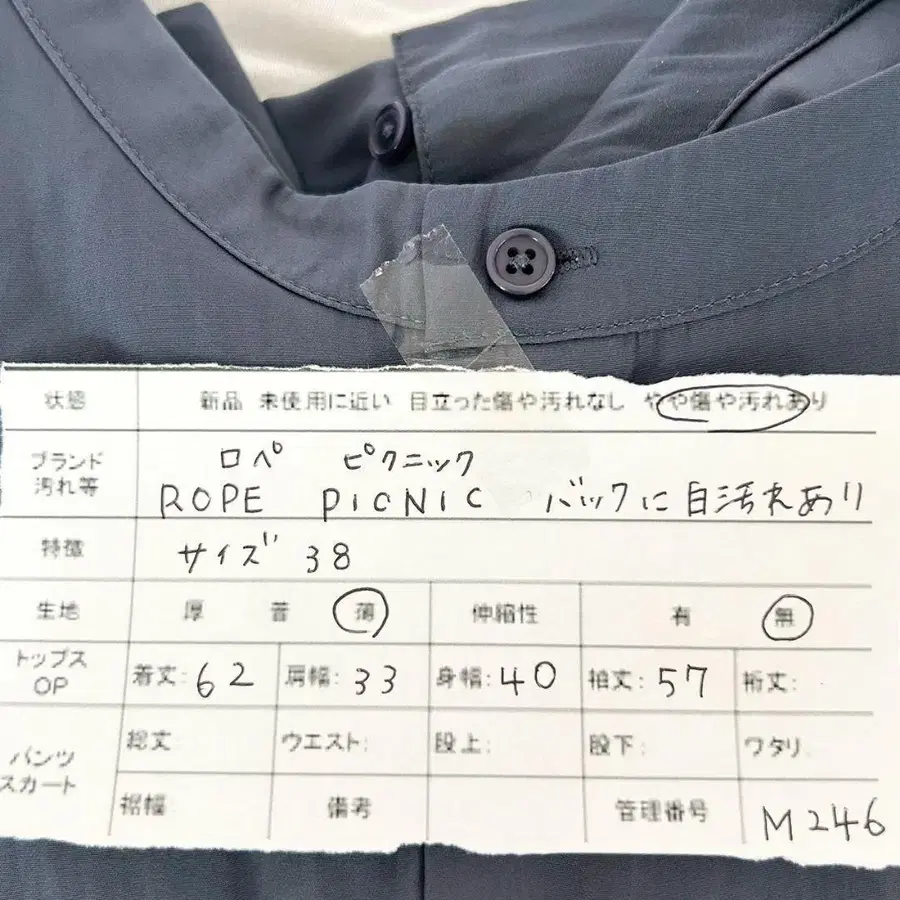 状態 新品 未使用に近い 目立った傷や汚れなし やや傷や汚れあり
ブランド ロペ ピクニック
汚れ等 ROPE PICNIC バックに白汚れあり
特徴 サイズ 38
生地 厚 普 薄 伸縮性 有 無
トップス OP 着丈:62 肩幅:33 身幅:40 袖丈:57 裄丈:
パンツ スカート 総丈 ウエスト: 股上: 股下: ワタリ
裾幅 備考 管理番号 M246